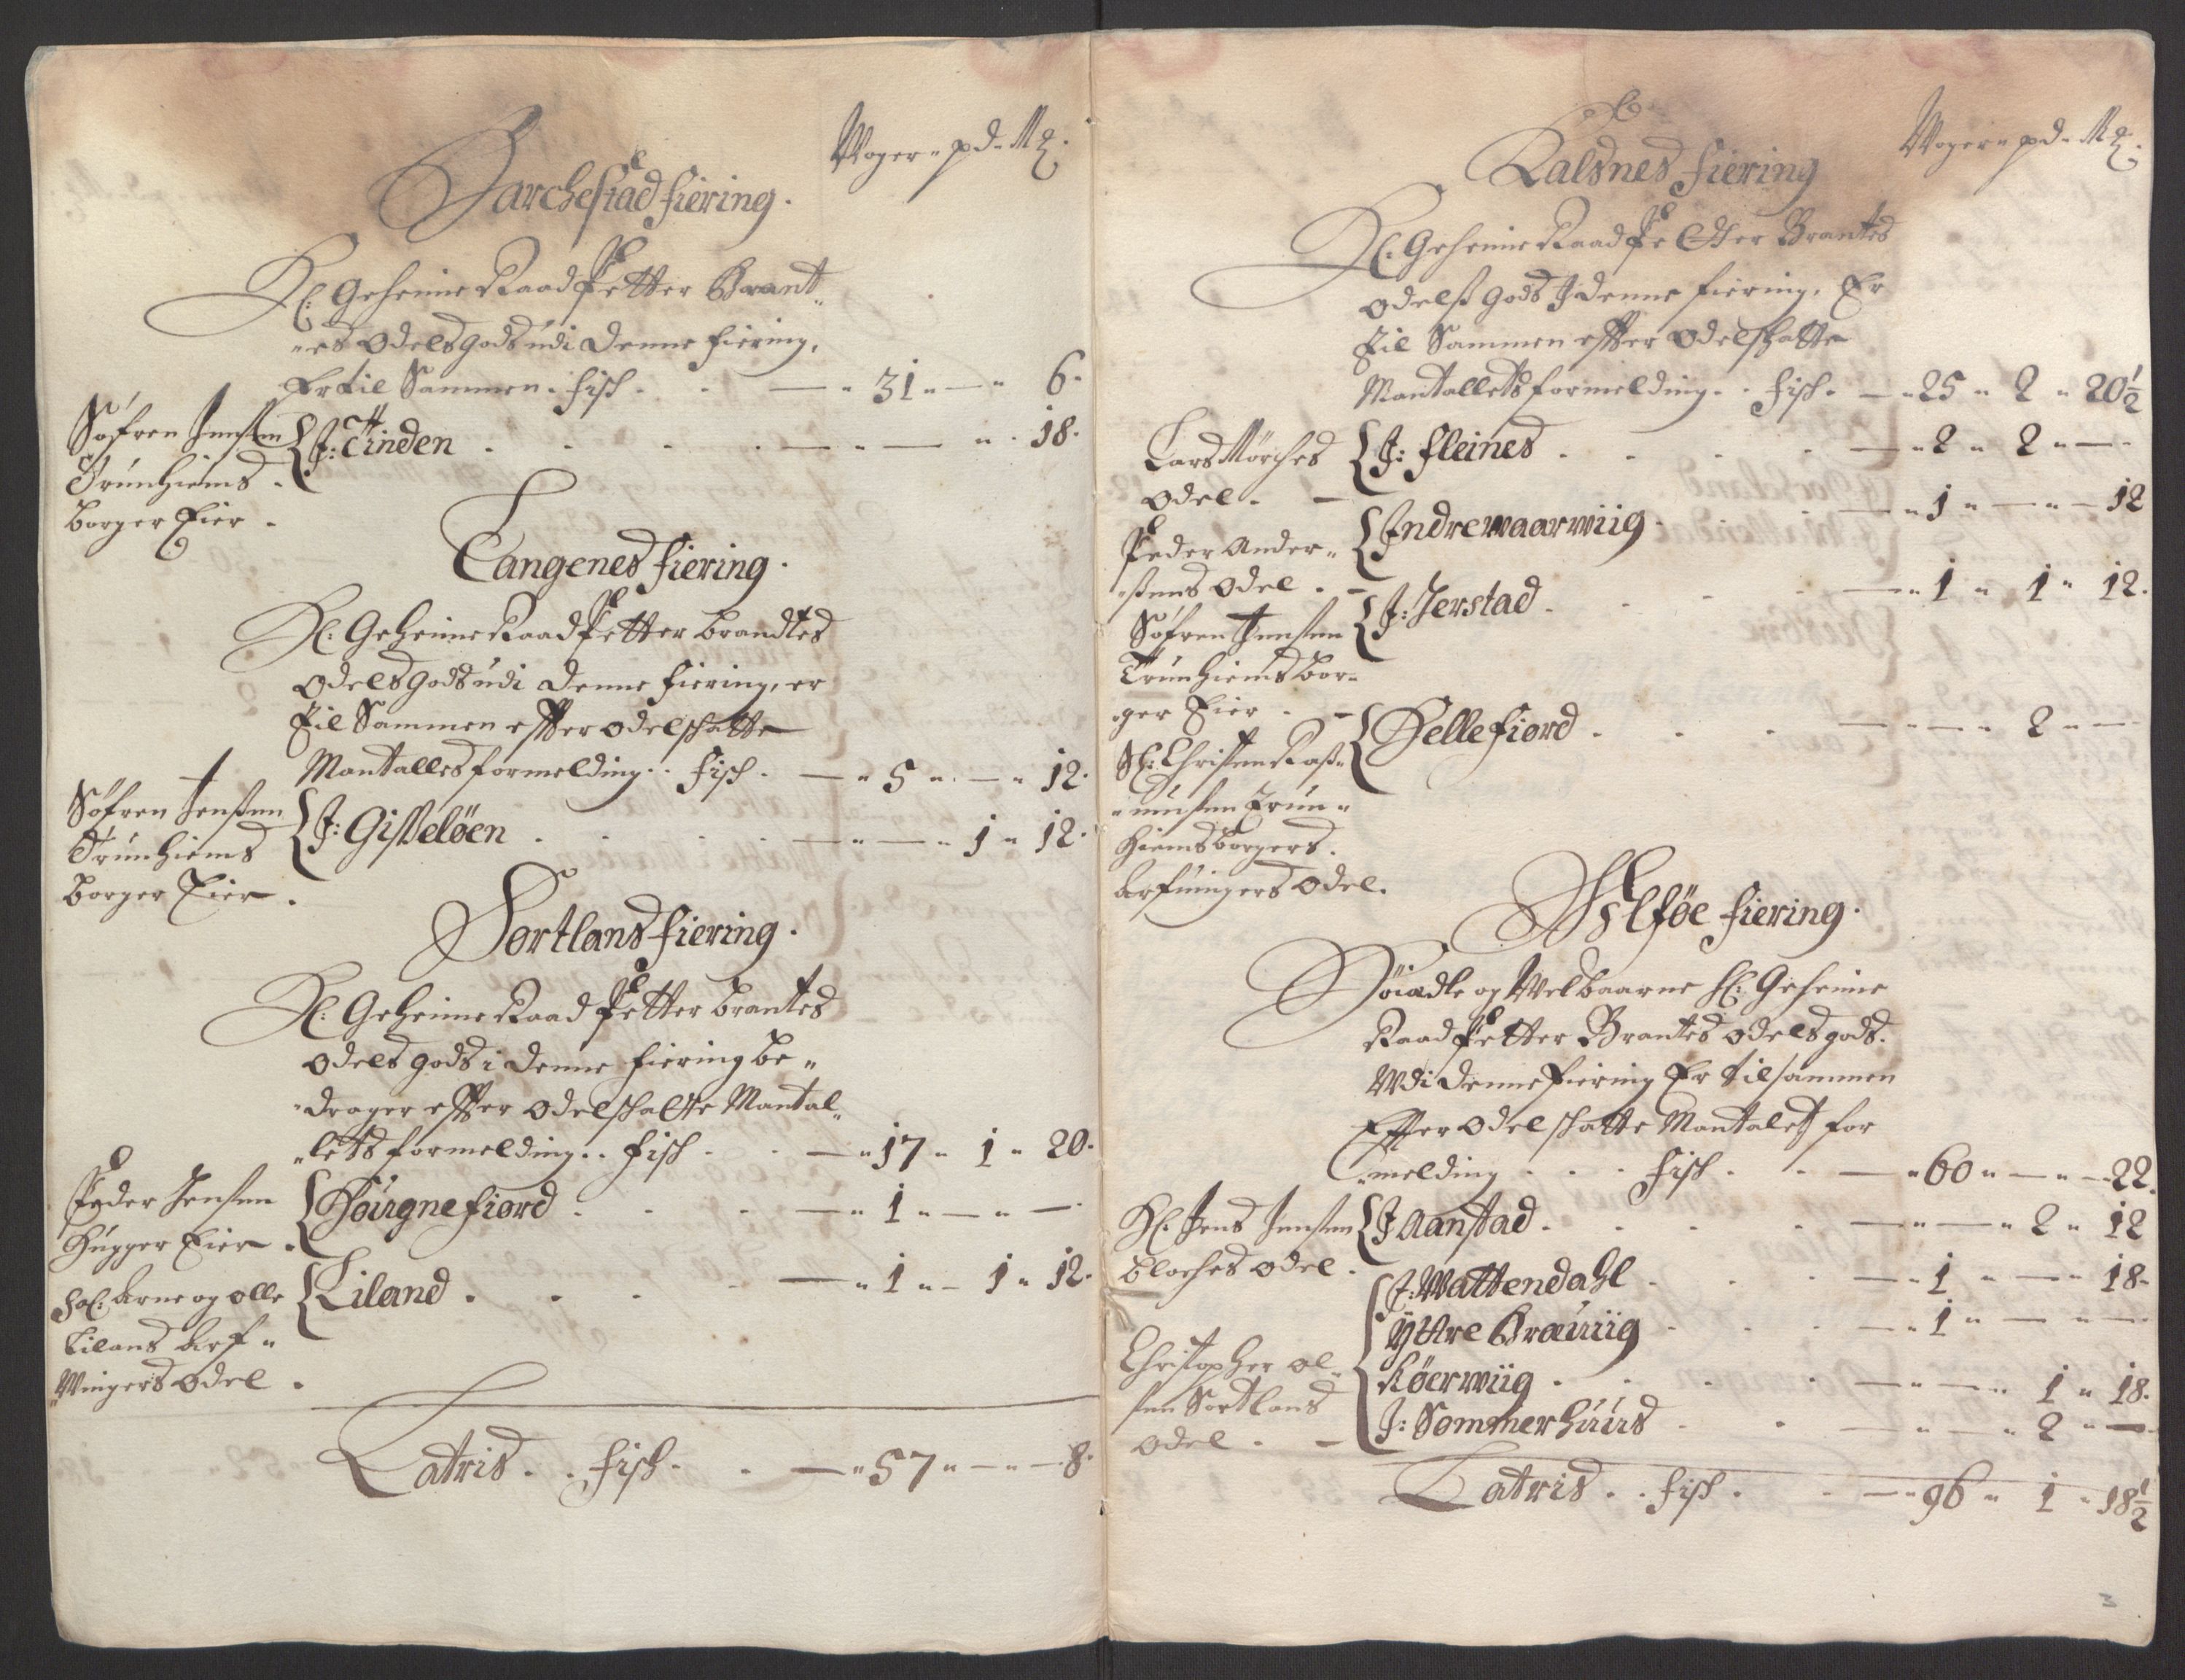 Woger pd Mk
Barchestad fiering.
Hl: Geheime Raad Petter Brant„
„es Odels Gods udi denne fiering,
Er til Sammen. fisk. — 31 — 6.
Søfren Jensen
Trunhiems
borger Eier.
J: Tinden . . . — — 18.
Langenes fiering.
Hl: Geheime Raad Petter brandtes
Odels Gods udi denne fiering, er
til Sammen effter odelskatte
Mantalles formelding. . fisk. — 5 — 12.
Søfren Jenssen
Trunhiems
borger Eier.
J: Gisseløen . . . — — 1 „ 12.
Sortlans fiering.
Hl: Geheime Raad Petter brantes
Odels gods i denne fiering be„
drager effter odelskatte Mantal„
„lets formelding. . fisk. — 17 „ 1 „ 20.
Peder Jensen
Hugger Eier.
Høugnefiord . . . — 1 — —
Sal: Arne og Olle
Lilans Arf„
„Wingers odel.
Liland . . . — 1 „ 1 „ 12.
Latris. . fisk. — 57 — 8.
Woger pd Mk
Kalsnes fiering
Hl: Geheime Raad Petter Brantes
odelß Gods J denne fiering, Er
til Sammen effter odelskatte
Mantallets formelding. . fisk. — 25 „ 2 „ 20½
Lars Mørches
odel.
J: fleines . . . — 2 „ 2 —
Peder Ander„
„ßens odel.
Indrewaarwiig . . — 1 — 12
Søfren Jensen
Trunhiems bor„
ger Eier.
J: Jerstad . . . — 1 „ 1 „ 12.
Sl: Christen Raß„
„mussen Trun„
hiems borgers
Arfuingers odel.
Hellefiord . . . — — 2 —
Hlføe fiering.
Høiædle og Welbaarne Hl: Geheime
Raad Petter Brantes odels gods.
Wdi denne fiering Er tilsammen
Effter odelskatte Mantalet for
„melding . . . fisk. — 60 — 22.
Hl. Jens Jensen
Bloches odel.
J Aanstad . . . — — 2 „ 12
Christopher ol„
sen Sortlans
odel.
J: Wattendahl . . — 1 — 18.
Yttre Bræuiig . . — 1 — —
Køerwiig . . . — — 1 „ 18.
J: Sommerhuus . . — — 2 —
Latris. . fisk. — 96 „ 1 „ 18½
3